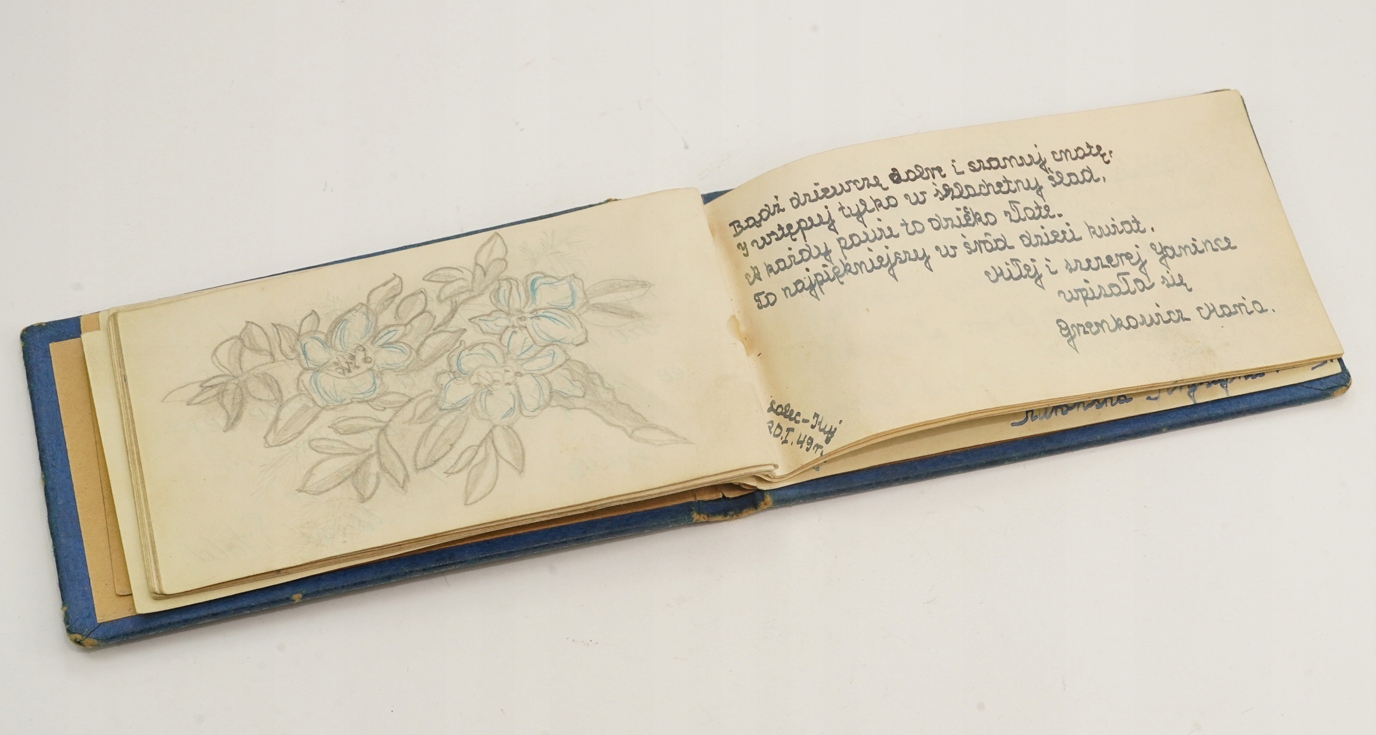 Bądź dziewczę dobre i szanuj cnotę.
Y wstępuj tylko w szlachetny ślad.
A każdy powie to dziéćko złote.
To najpiękniejszy w śród dzieci kwiat.
Miłej i szczerej Janince
wpisała się
Grzenkowicz Maria.
Solec-Kuj
20.I.49r.